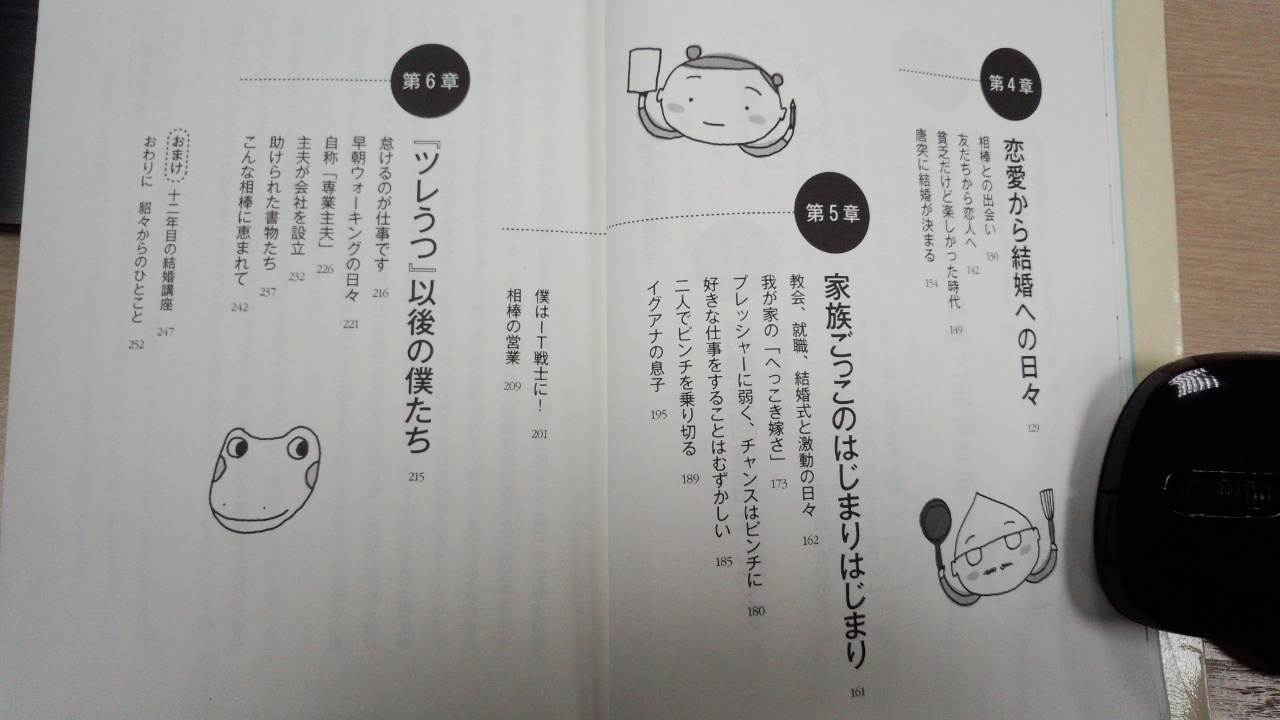 第4章
恋愛から結婚への日々 129
相棒との出会い 130
友だちから恋人へ 142
貧乏だけど楽しかった時代 149
唐突に結婚が決まる 154
第5章
家族ごっこのはじまりはじまり 161
教会、就職、結婚式と激動の日々 162
我が家の「へっこき嫁さ」 173
プレッシャーに弱く、チャンスはピンチに 180
好きな仕事をすることはむずかしい 185
二人でピンチを乗り切る 189
イグアナの息子 195
僕はIT戦士に! 201
相棒の営業 209
第6章
『ツレうつ』以後の僕たち 215
怠けるのが仕事です 216
早朝ウォーキングの日々 221
自称「専業主夫」 226
主夫が会社を設立 232
助けられた書物たち 237
こんな相棒に恵まれて 242
おまけ 十二年目の結婚講座 247
おわりに 貂々からのひとこと 252